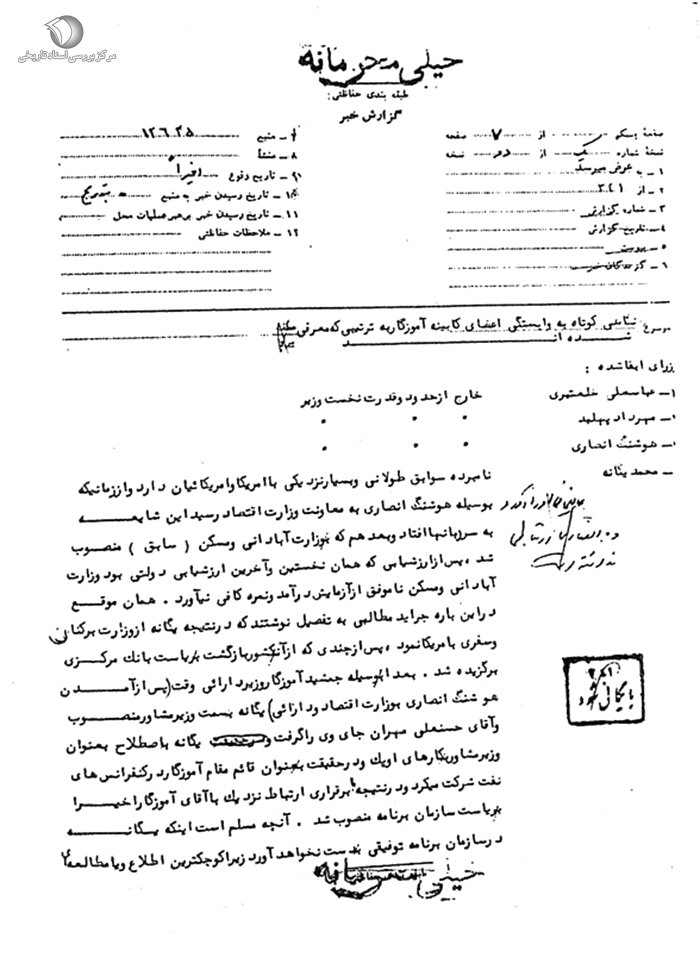 مرکز بررسی اسناد تاریخی
خیلی محرمانه
طبقه بندی حفاظتی:
گزارش خبر
صفحهٔ یک از ۷ صفحه
نسخهٔ شماره یک از دو نسخه
۱ـ به عرض میرسد
۲ـ از ۳۲۱
۳ـ شماره گزارش
۴ـ تاریخ گزارش
۵ـ پیوست
۶ـ گیرندگان خبر
۷ـ منبع ۱۲۶۲۵
۸ـ منشأ
۹ـ تاریخ وقوع اخیراً
۱۰ـ تاریخ رسیدن خبر به منبع بتدریج
۱۱ـ تاریخ رسیدن خبر برهبر عملیات محل
۱۲ـ ملاحظات حفاظتی
موضوع: نگاهی کوتاه به وابستگی اعضای کابینه آموزگار به ترتیبی که معرفی
شده اند
زرای ابقا شده :
۱ـ عباسعلی خلعتبری خارج از حدود قدرت نخست وزیر
ـ مهرداد پهلبد " " "
ـ هوشنگ انصاری " " "
ـ محمد یگانه
نامبرده سوابق طولانی و بسیار نزدیکی با امریکا و امریکائیان دارد و از زمانیکه
بوسیله هوشنگ انصاری به معاونت وزارت اقتصاد رسید این شایعه
به سر زبانها افتاد و بعد هم که بوزارت آبادانی و مسکن (سابق) منصوب
شد پس از ارزشیابی که همان نخستین و آخرین ارزشیابی دولتی بود وزارت
آبادانی و مسکن ناموفق از آزمایش درآمد و نمره کافی نیآورد. همان موقع
در این باره جراید مطالبی به تفصیل نوشتند که در نتیجه یگانه از وزارت برکنار
و سفری بامریکا نمود، پس از چندی که از آنکشور بازگشت بریاست بانک مرکزی
برگزیده شد. بعداً بوسیله جمشید آموزگار وزیر دارائی وقت (پس از آمدن
هوشنگ انصاری بوزارت اقتصاد و دارائی) یگانه بسمت وزیر مشاور منصوب
و آقای حسنعلی مهران جای وی را گرفت و یگانه باصطلاح بعنوان
وزیر مشاور بکارهای اوپک و در حقیقت بعنوان قائم مقام آموزگار در کنفرانس های
نفت شرکت میکرد و در نتیجه برقراری ارتباط نزدیک با آقای آموزگار اخیراً
بریاست سازمان برنامه منصوب شد. آنچه مسلم است اینکه یگانه
در سازمان برنامه توفیقی بدست نخواهد آورد زیرا کوچکترین اطلاع و یا مطالعه
بایگانی شود
خیلی محرمانه